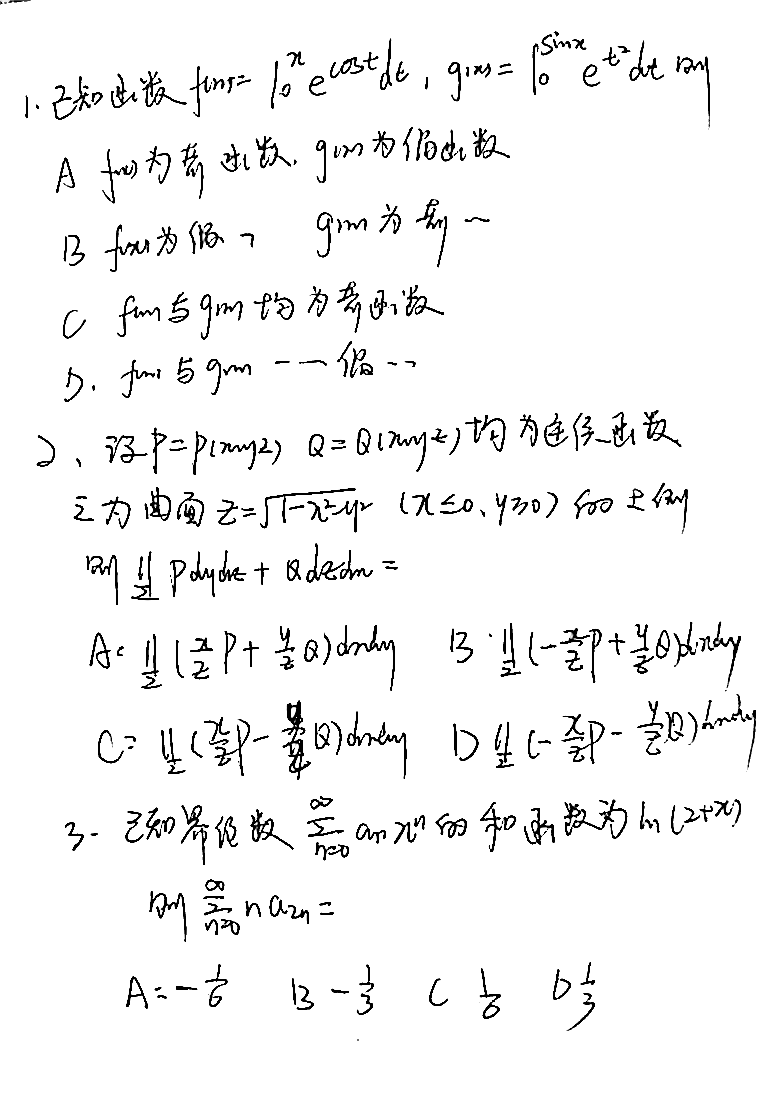 1. 已知函数 f(x) = ∫₀ˣ e^{cost}dt, g(x) = ∫₀^{sinx} e^{t²}dt 则
A f(x)为奇函数. g(x)为偶函数
B f(x)为偶 ~ g(x)为奇 ~
C f(x)与g(x)均为奇函数
D. f(x)与g(x) -- 偶 --
2、设P=P(x,y,z) Q=Q(x,y,z)均为连续函数
Σ为曲面 z=√(1-x²-y²) (x≤0, y≥0)的上侧
则 ∬_Σ Pdydz + Qdzdx =
A: ∬_Σ (x/z P + y/z Q)dxdy B. ∬_Σ (-x/z P + y/z Q)dxdy
C: ∬_Σ (x/z P - y/z Q)dxdy D ∬_Σ (-x/z P - y/z Q)dxdy
3. 已知幂级数 ∑_{n=0}^{∞} aₙxⁿ 的和函数为 ln(2+x)
则 ∑_{n=0}^{∞} n a₂ₙ =
A: -1/6 B -1/3 C 1/6 D 1/3